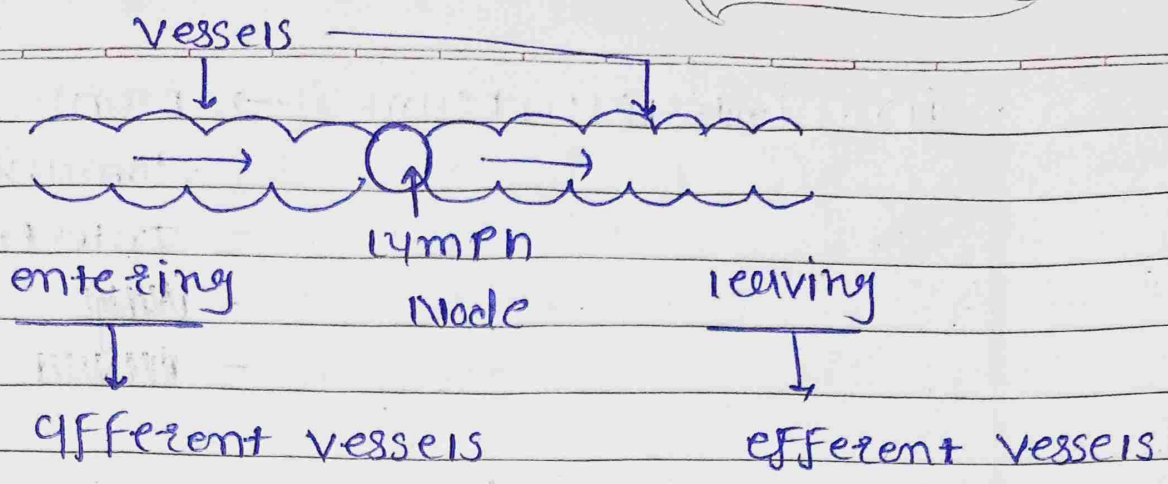 Vessels
Lymph
Node
entering
leaving
afferent vessels
efferent vessels